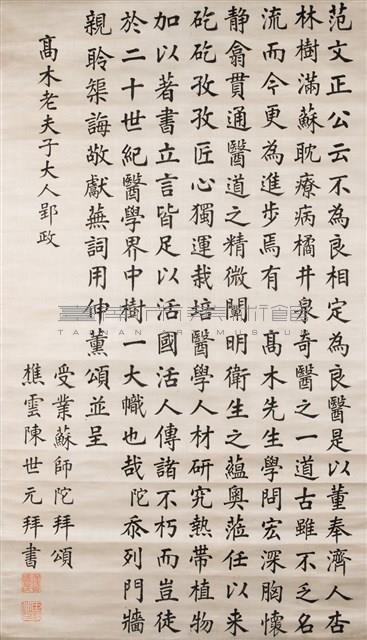 范文正公云不為良相定為良醫是以董奉濟人杏
林樹滿蘇耽療病橘井泉奇醫之一道古雖不之名
流而今更為進步焉有 髙木先生學問宏深胸懷
静翕貫通醫道之精微闡明衛生之蘊奧蒞任以来
矻矻孜孜匠心獨運栽培醫學人材研究熱帶植物
加以著書立言皆足以活國活人傳諸不朽而豈徒
於二十世紀醫學界中樹一大幟也哉陀忝列門牆
親聆榘誨敬獻蕪詞用伸薰頌並呈
髙木老夫子大人郢政
受業蘇師陀拜頌
樵雲陳世元拜書
TAINAN ART MUSEUM